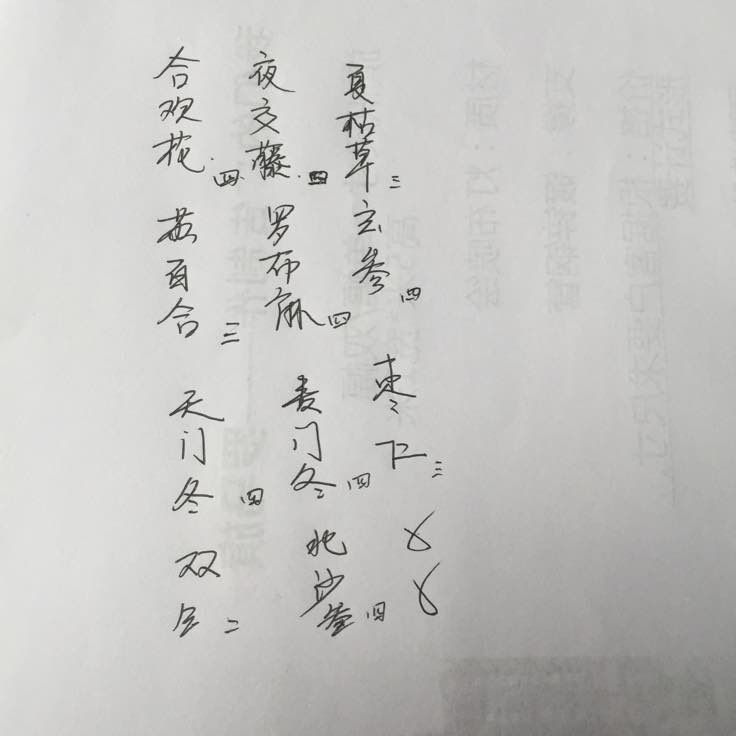 夏枯草三
夜交藤四
合欢花四
玄参四
罗布麻四
百合三
枣仁三
麦门冬四
天门冬四
北沙参四
双二